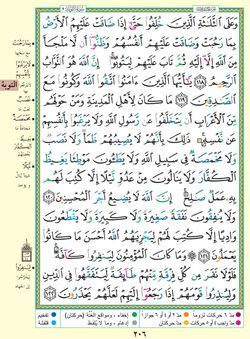 وَعَلَى ٱلثَّلَٰثَةِ ٱلَّذِينَ خُلِّفُوا۟ حَتَّىٰٓ إِذَا ضَاقَتْ عَلَيْهِمُ ٱلْأَرْضُ
بِمَا رَحُبَتْ وَضَاقَتْ عَلَيْهِمْ أَنفُسُهُمْ وَظَنُّوٓا۟ أَن لَّا مَلْجَأَ
مِنَ ٱللَّهِ إِلَّآ إِلَيْهِ ثُمَّ تَابَ عَلَيْهِمْ لِيَتُوبُوٓا۟ إِنَّ ٱللَّهَ هُوَ ٱلتَّوَّابُ
ٱلرَّحِيمُ ١١٨ يَٰٓأَيُّهَا ٱلَّذِينَ ءَامَنُوا۟ ٱتَّقُوا۟ ٱللَّهَ وَكُونُوا۟ مَعَ
ٱلصَّٰدِقِينَ ١١٩ مَا كَانَ لِأَهْلِ ٱلْمَدِينَةِ وَمَنْ حَوْلَهُم
مِّنَ ٱلْأَعْرَابِ أَن يَتَخَلَّفُوا۟ عَن رَّسُولِ ٱللَّهِ وَلَا يَرْغَبُوا۟ بِأَنفُسِهِمْ
عَن نَّفْسِهِۦ ذَٰلِكَ بِأَنَّهُمْ لَا يُصِيبُهُمْ ظَمَأٌ وَلَا نَصَبٌ
وَلَا مَخْمَصَةٌ فِى سَبِيلِ ٱللَّهِ وَلَا يَطَـُٔونَ مَوْطِئًا يَغِيظُ
ٱلْكُفَّارَ وَلَا يَنَالُونَ مِنْ عَدُوٍّ نَّيْلًا إِلَّا كُتِبَ لَهُم
بِهِۦ عَمَلٌ صَٰلِحٌ إِنَّ ٱللَّهَ لَا يُضِيعُ أَجْرَ ٱلْمُحْسِنِينَ ١٢٠
وَلَا يُنفِقُونَ نَفَقَةً صَغِيرَةً وَلَا كَبِيرَةً وَلَا يَقْطَعُونَ
وَادِيًا إِلَّا كُتِبَ لَهُمْ لِيَجْزِيَهُمُ ٱللَّهُ أَحْسَنَ مَا كَانُوا۟
يَعْمَلُونَ ١٢١ وَمَا كَانَ ٱلْمُؤْمِنُونَ لِيَنفِرُوا۟ كَآفَّةً
فَلَوْلَا نَفَرَ مِن كُلِّ فِرْقَةٍ مِّنْهُمْ طَآئِفَةٌ لِّيَتَفَقَّهُوا۟ فِى ٱلدِّينِ
وَلِيُنذِرُوا۟ قَوْمَهُمْ إِذَا رَجَعُوٓا۟ إِلَيْهِمْ لَعَلَّهُمْ يَحْذَرُونَ ١٢٢
التوبة
٢٠٦